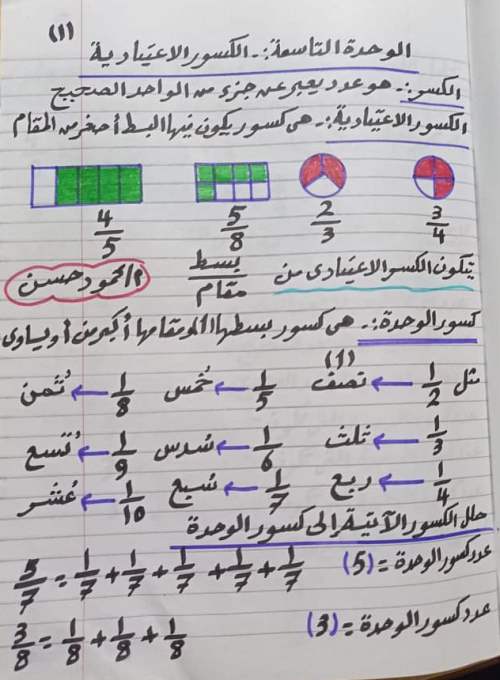 (١)
الوحدة التاسعة:- الكسور الاعتيادية
الكسر:- هو عدد يعبر عن جزء من الواحد الصحيح
الكسور الاعتيادية:- هى كسور يكون فيها البسط أصغر من المقام
3/4 2/3 5/8 4/5
يتكون الكسر الاعتيادى من بسط/مقام م/محمود حسن
كسور الوحدة:- هى كسور بسطها ١ ومقامها أكبر من أو يساوى (١)
مثل 1/2 ← نصف 1/5 ← خُمس 1/8 ← ثُمن
1/3 ← ثلث 1/6 ← سُدس 1/9 ← تُسع
1/4 ← ربع 1/7 ← سُبع 1/10 ← عُشر
حلل الكسور الآتية إلى كسور الوحدة
عدد كسور الوحدة = (5) 5/7 = 1/7 + 1/7 + 1/7 + 1/7 + 1/7
عدد كسور الوحدة = (3) 3/8 = 1/8 + 1/8 + 1/8